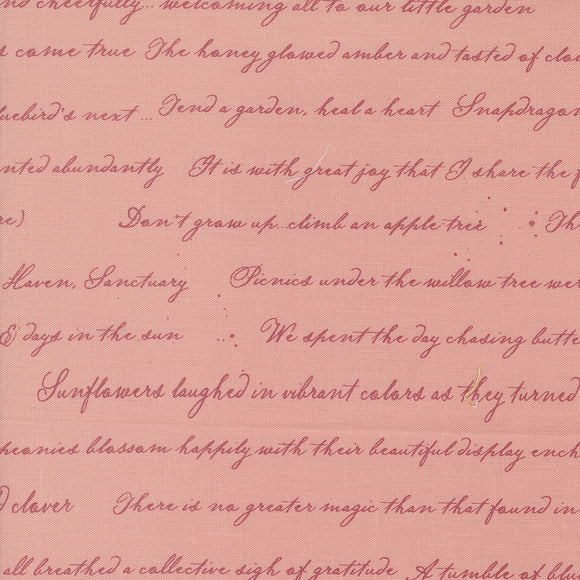 cheerfully... welcoming all to our little garden
come true The honey glowed amber and tasted of
next ... Tend a garden, heal a heart
abundantly It is with great joy that I share the
Don't grow up...climb an apple tree
Haven, Sanctuary Picnics under the willow tree
& days in the sun We spent the day chasing
Sunflowers laughed in vibrant colors as they turned
peonies blossom happily with their beautiful display
clover There is no greater magic than that found in
all breathed a collective sigh of gratitude A tumble of